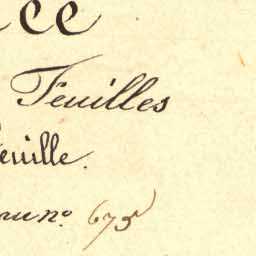 ce
Feuilles
euille.
au no. 675